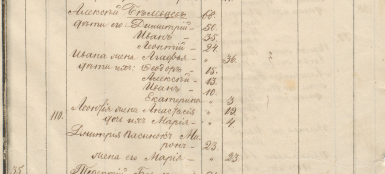 Алексѣй 68.
дѣти его: Димитрій 50.
Иванъ - 35.
Леонтій - 24.
Ивана жена Агафья " 36.
дѣти ихъ: Ѳедоръ - 15.
Алексѣй - 13.
Иванъ - 10.
Екатерина " 3
Леонтія жена Анастасія " 19.
110. дочь ихъ Марія - " 4.
Дмитрія пасынокъ Ми-
ронъ - 23
жена его Марія - " 23